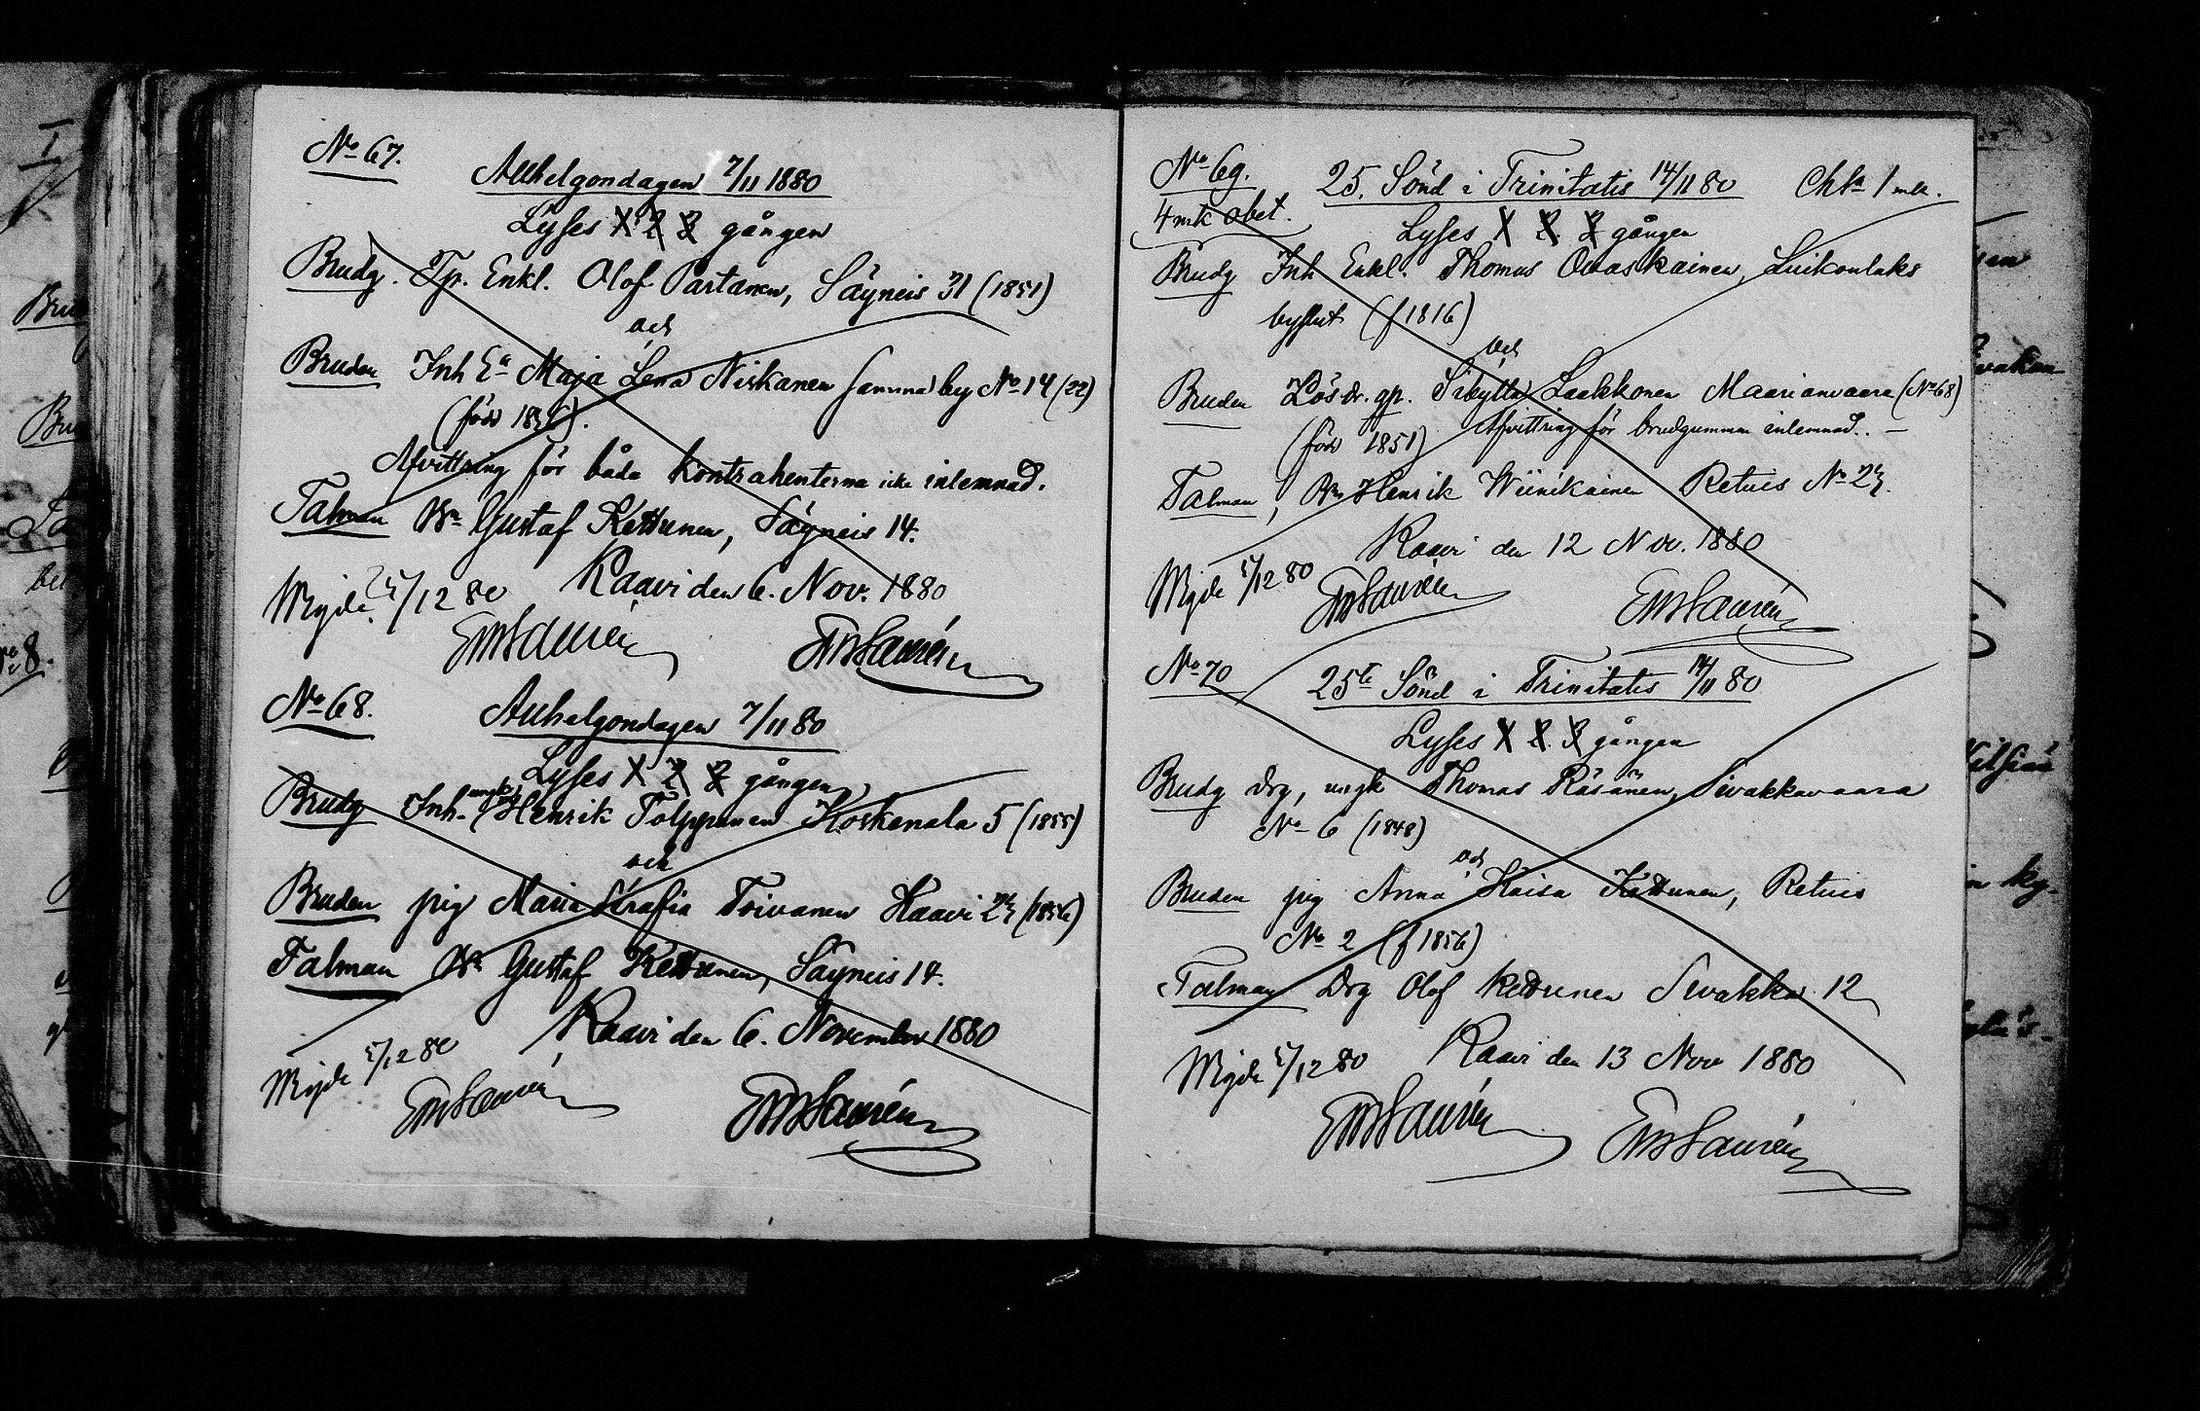 No 67.
Allhelgondagen 7/11 1880
Lyses 1 2 3 gången
Brudg. Tp. Enkl. Olof Partanen, Säyneis 31 (1851)
och
Bruden Inh Ea Maja Lena Niskanen samma by No 14 (22)
(född 1836).
Afvittring för båda kontrahenterna icke inlemnad.
Talman Bn Gustaf Kettunen, Säyneis 14.
Kaavi den 6. Nov. 1880
Wigde 5/12 80
EWLaurén
EWLaurén
No 68.
Allhelgondagen 7/11 80
Lyses 1 2 3 gången
Brudg Inh. ungk. Henrik Tolppanen Koskenala 5 (1855)
och
Bruden pig Maria Serafia Toivanen Kaavi 25 (1856)
Talman Bn Gustaf Kettunen, Säyneis 14.
Kaavi den 6. November 1880
Wigde 5/12 80
EWLaurén
EWLaurén
No 69.
25. Sönd i Trinitatis 14/11 80
1 mk.
4 mk obet.
Lyses 1 2. 3 gången
Brudg Inh Enkl. Thomas Ovaskainen, Luikonlaks
(f 1816)
och
Bruden Lösdr. qp. Sibylla Laakkonen Maarianvaara (No 68)
(född 1851) Afvittring för brudgummen inlemnad. –
Talman, Bn Henrik Wiinikainen Retuis No 25.
Kaavi den 12 Nov. 1880
Wigde 5/12 80
EWLaurén
EWLaurén
No 70
25te Sönd i Trinitatis 14/11 80
Lyses 1 2. 3 gången
Brudg drg, ungk Thomas Räsänen, Sivakkavaara
No 6 (1848)
och
Bruden pig Anna Kaisa Kettunen, Retuis
No 2 (f 1856)
Talman Drg Olof Kettunen Sivakka 12
Kaavi den 13 Nov 1880
Wigde 5/12 80
EWLaurén
EWLaurén